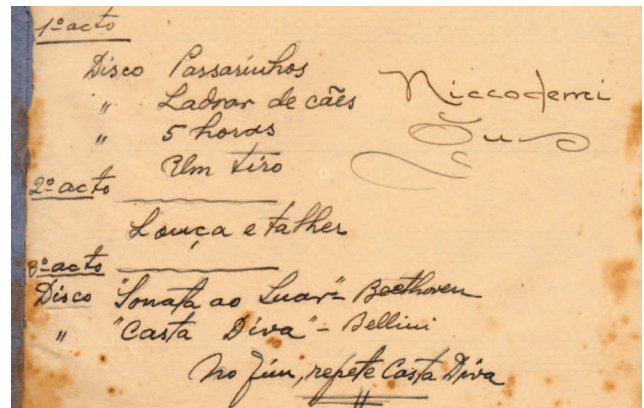 1º acto
Disco Passarinhos
" Ladrar de cães
" 5 horas
Um tiro
Niccodemi
2º acto
Louça e talher
3º acto
Disco "Sonata ao Luar" - Beethoven
" "Casta Diva" - Bellini
No fim, repete Casta Diva